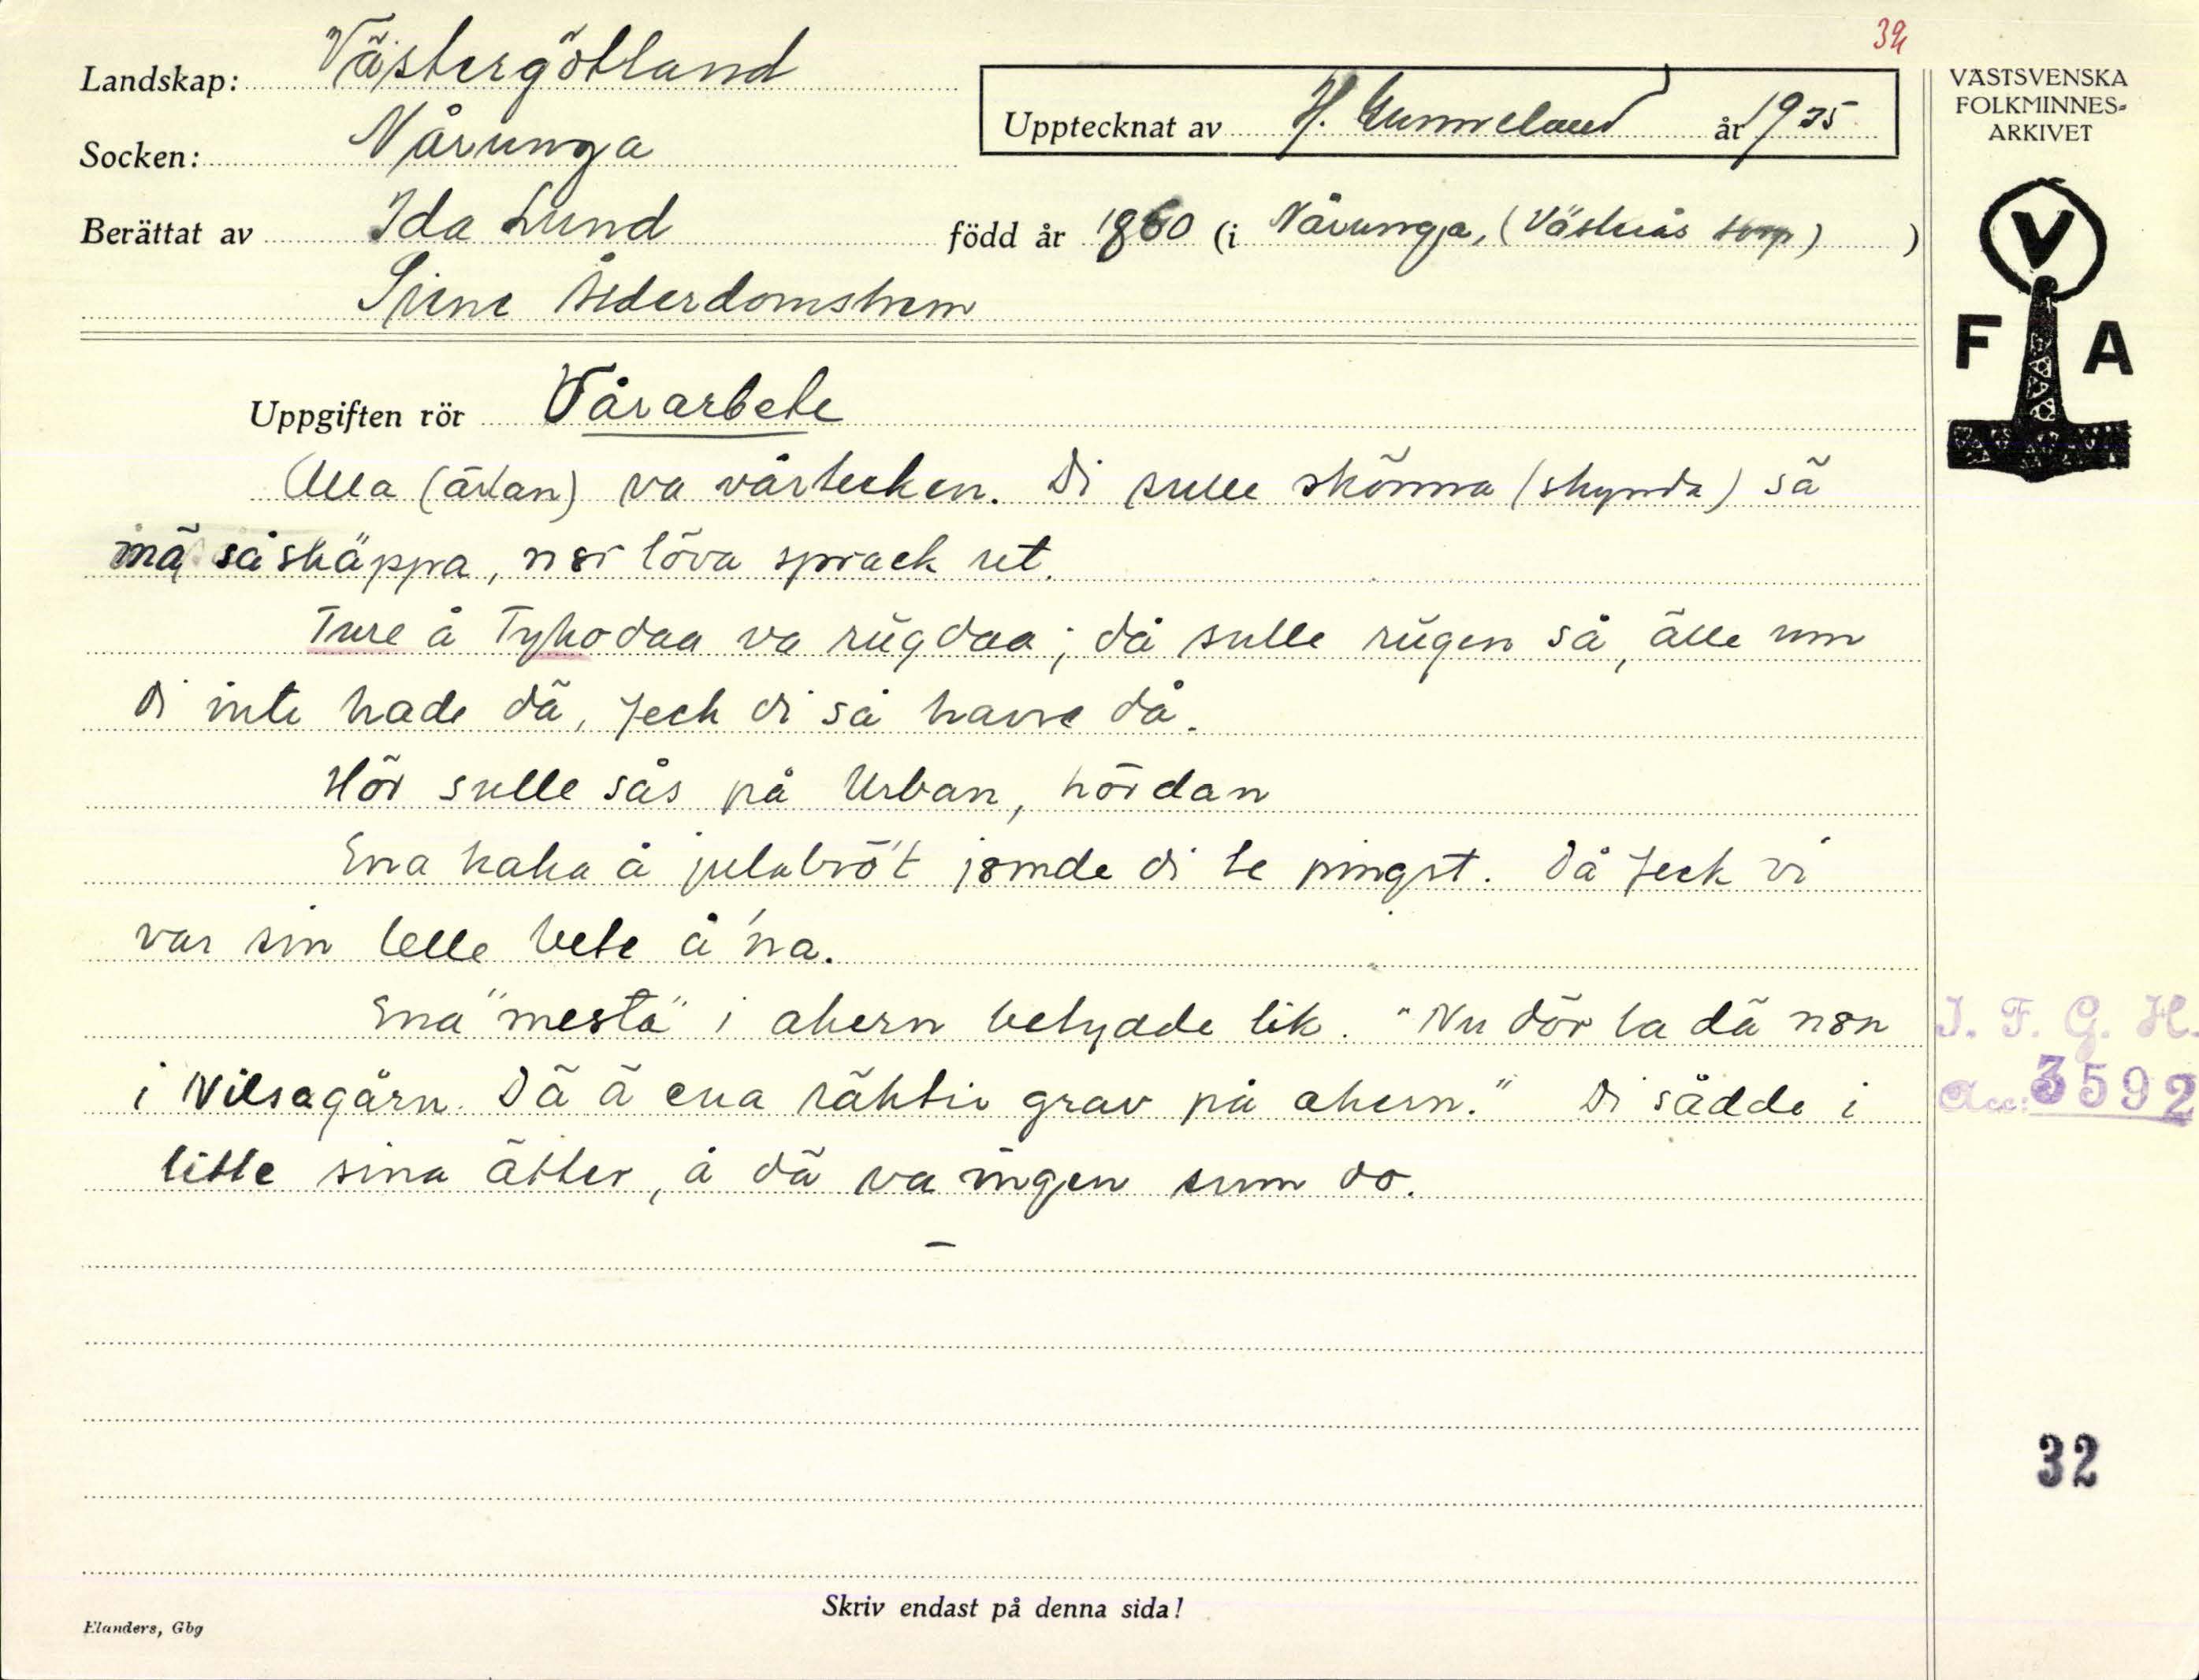 32
Landskap: Västergötland
Socken: Nårunga
Upptecknat av H. Gunneland år 1935
Berättat av Ida Lund född år 1860 (i Nårunga, (Västerås torp) )
ålderdomshem
VÄSTSVENSKA
FOLKMINNES-
ARKIVET
V
F A
Uppgiften rör Vårarbete
Alla (ärlan) va vårtecken. Di sulle skönna (skynda) så
mä såskäppa, når löva sprack ut.
Ture å Tykodaa va rügdaa; då sulle rügen så, älle um
di inte hade dä, feck di så havre då.
Hör sulle sås på Urban, hördan
Ena kaka å julabröt jömde di te pingst. Då feck vi
var sin lelle bete å'na.
Ena "mesta" i akern betydde lik. "Nu dör la dä nån
i Nilsagårn. Dä ä ena räktir grav på akern." Di sådde i
litte sina ätter, å dä va ingen sum do.
–
I. F. G. H.
Acc: 3592
32
Skriv endast på denna sida!
Elanders, Gbg